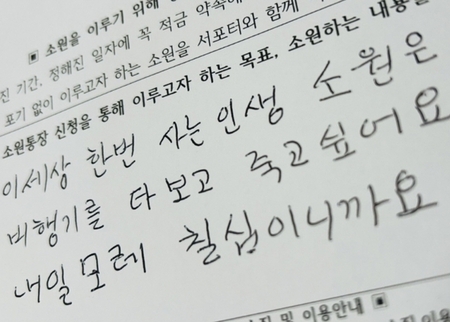 ▣ 소원을 이루기 위해
진 기간, 정해진 일자에 꼭 적금 약속
포기 없이 이루고자 하는 소원을 서포터와 함께
소원통장 신청을 통해 이루고자 하는 목표, 소원하는 내용을
이세상 한번 사는인생 소원은
비행기를 타보고 죽고싶어요
내일 모레 칠십이니까요
및 이용안내 ▣